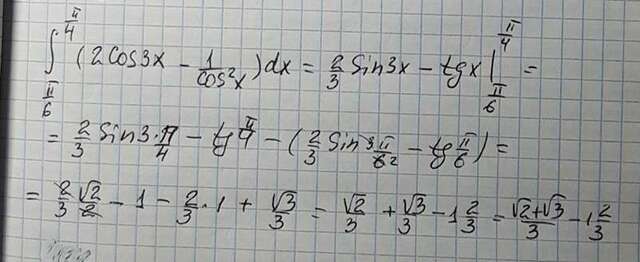 ∫_{π/6}^{π/4} (2cos3x − 1/cos²x)dx = 2/3 sin3x − tgx |_{π/6}^{π/4} =
= 2/3 sin3·π/4 − tg π/4 − (2/3 sin 3π/6₂ − tg π/6) =
= 2/3 √2/2 − 1 − 2/3·1 + √3/3 = √2/3 + √3/3 − 1 2/3 = (√2+√3)/3 − 1 2/3